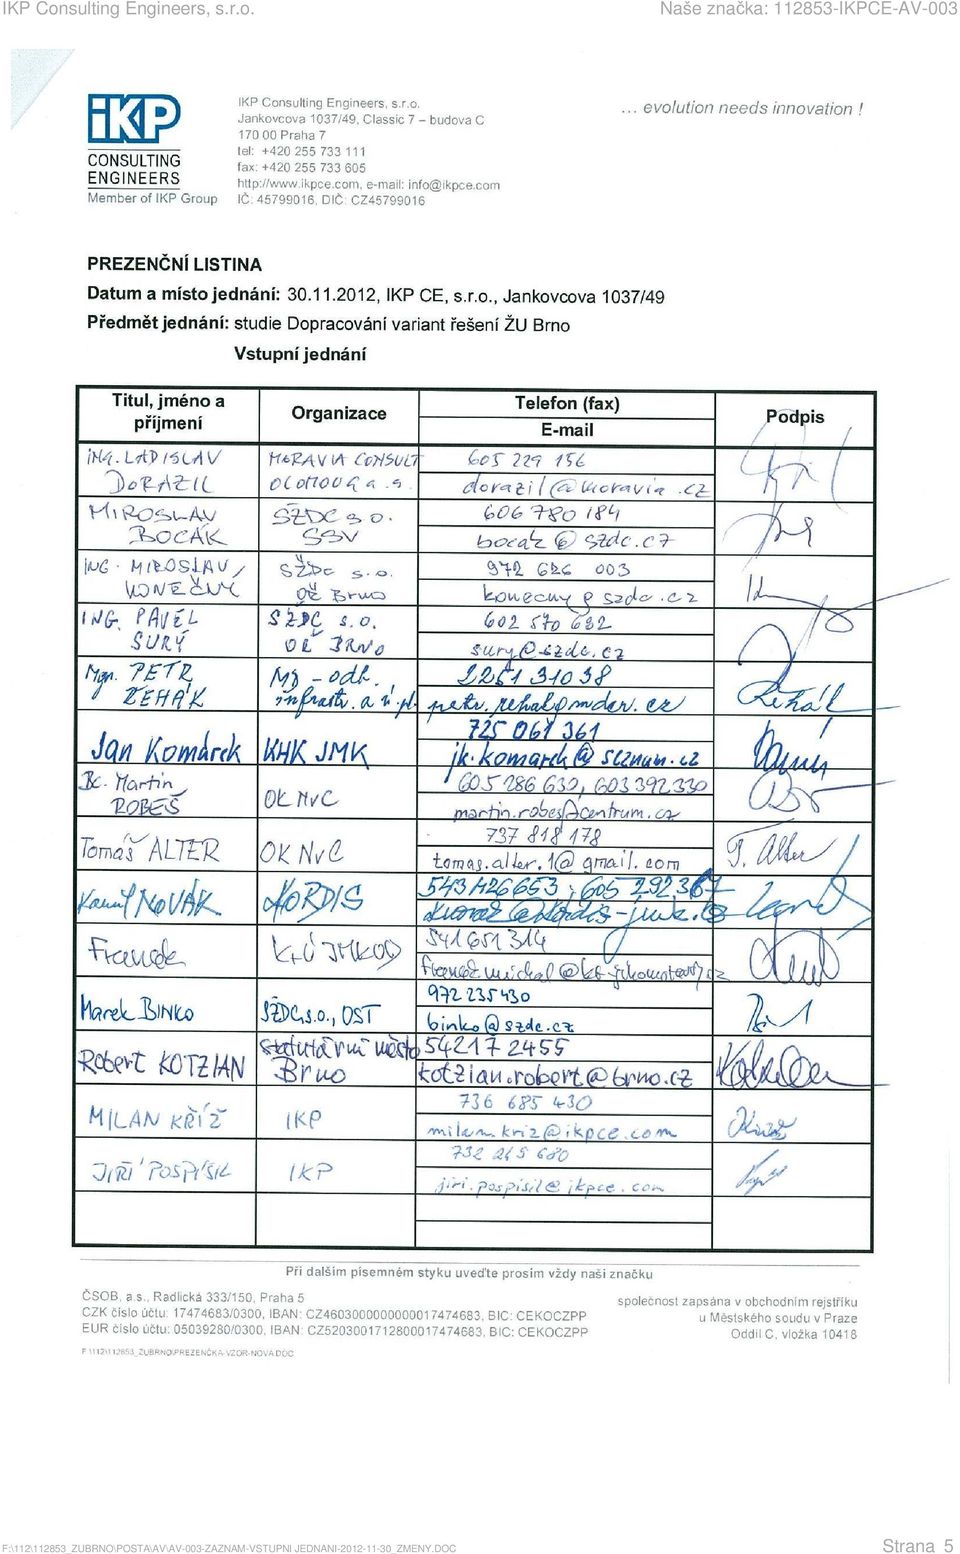 IKP Consulting Engineers, s.r.o. Naše značka: 112853-IKPCE-AV-003
IKP
CONSULTING
ENGINEERS
Member of IKP Group
IKP Consulting Engineers, s.r.o.
Jankovcova 1037/49, Classic 7 – budova C
170 00 Praha 7
tel: +420 255 733 111
fax: +420 255 733 605
http://www.ikpce.com, e-mail: info@ikpce.com
IČ: 45799016, DIČ: CZ45799016
... evolution needs innovation !
PREZENČNÍ LISTINA
Datum a místo jednání: 30.11.2012, IKP CE, s.r.o., Jankovcova 1037/49
Předmět jednání: studie Dopracování variant řešení ŽU Brno
Vstupní jednání
Titul, jméno a příjmení Organizace Telefon (fax) E-mail Podpis
ING. LADISLAV DORAZIL MORAVIA CONSULT OLOMOUC a.s. 605 229 156
dorazil@moravia.cz
MIROSLAV BOCÁK SŽDC s.o. SSV 606 780 184
bocak@szdc.cz
ING. MIROSLAV KONEČNÝ SŽDC s.o. OŘ Brno 972 626 003
konecnym@szdc.cz
ING. PAVEL SURÝ SŽDC s.o. OŘ BRNO 602 570 632
sury@szdc.cz
Mgr. PETR ŘEHÁK MD - odb. infrastr. a ú. pl. 2251 31038
petr.rehak@mdcr.cz Řehák
Jan Komárek KHK JMK 725 061 361
jk.komarek@seznam.cz
Bc. Martin ROBEŠ OK NvC 605 286 630, 603 392 330
martin.robes@centrum.cz
Tomáš ALTER OK NvC 737 818 178
tomas.alter.1@gmail.com T. Alter
Kamil NOVÁK KORDIS 543 426 653; 605 292 367
Franek KrÚ JMK 541 651 314
Marek BINKO SŽDC, s.o., OST 972 235 430
binko@szdc.cz
Robert KOTZIAN Statutární město Brno 542 17 2455
kotzian.robert@brno.cz
MILAN KŘÍŽ IKP 736 685 430
milan.kriz@ikpce.com
JIŘÍ POSPÍŠIL IKP 732 215 680
jiri.pospisil@ikpce.com
Při dalším písemném styku uveďte prosím vždy naši značku
ČSOB, a.s., Radlická 333/150, Praha 5
CZK číslo účtu: 17474683/0300, IBAN: CZ4603000000000017474683, BIC: CEKOCZPP
EUR číslo účtu: 05039280/0300, IBAN: CZ5203001712800017474683, BIC: CEKOCZPP
společnost zapsána v obchodním rejstříku
u Městského soudu v Praze
Oddíl C, vložka 10418
F:\112\112853_ZUBRNO\PREZENČKA-VZOR-NOVA.DOC
F:\112\112853_ZUBRNO\POSTA\AV\AV-003-ZAZNAM-VSTUPNI JEDNANI-2012-11-30_ZMENY.DOC Strana 5